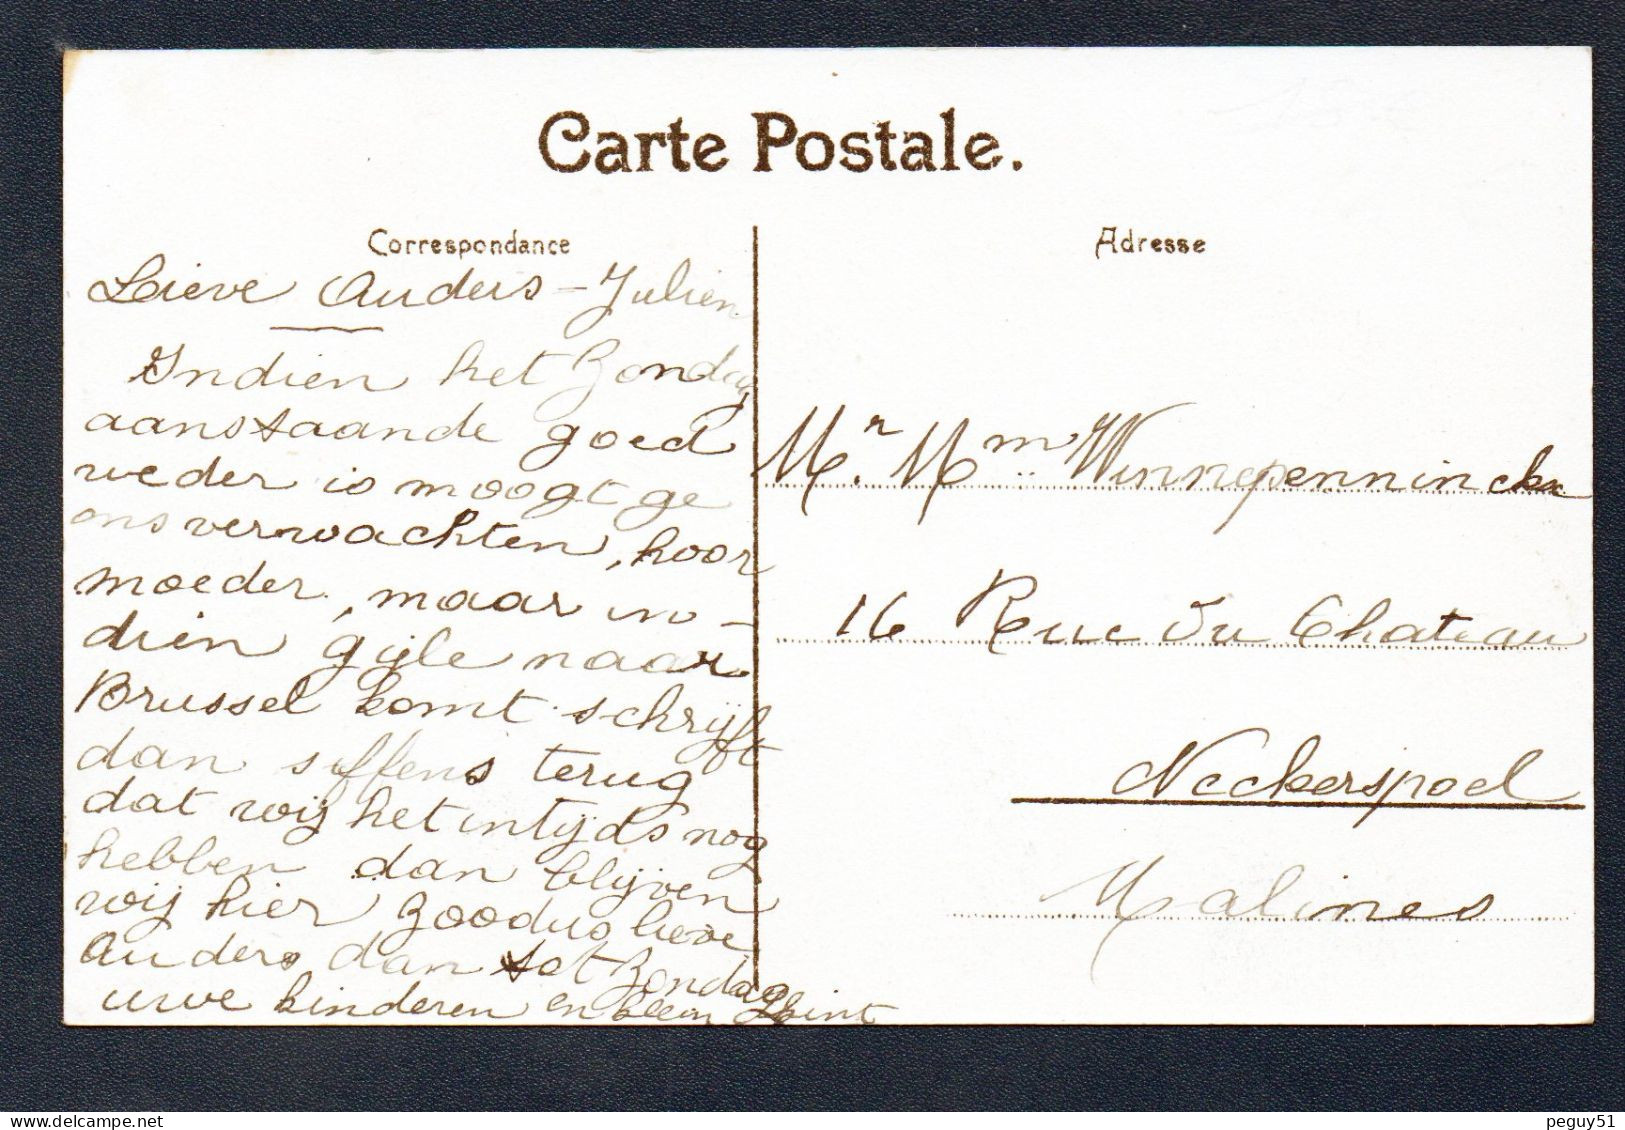 Carte Postale.
Correspondance
Lieve Ouders - Julien
Indien het Zondag
aanstaande goed
weder is moogt ge
ons verwachten, hoor
moeder, maar in-
dien gijle naar
Brussel komt schrijft
dan seffens terug
dat wij het intijds nog
hebben dan blijven
wij hier zoodus lieve
Ouders dan tot Zondag
uwe kinderen en klein
Adresse
Mr. Mm Winnepenninckx
16 Rue du Chateau
Neckerspoel
Malines
peguy51